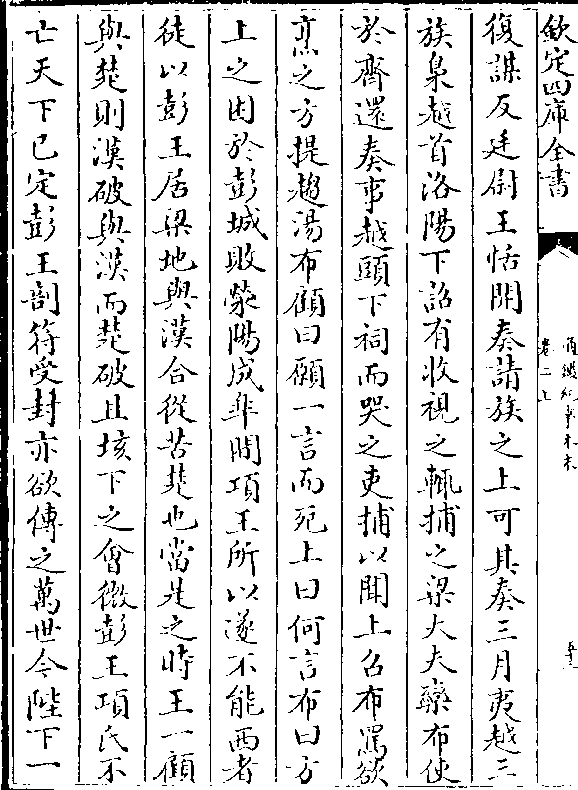 欽定四庫全書
通鑑紀事本末
卷二上
復謀反廷尉王恬開奏請族之上可其奏三月夷越三
族梟越首洛陽下詔有收視之輒捕之梁大夫欒布使
於齊還奏事越頭下祠而哭之吏捕以聞上召布罵欲
烹之方提趨湯布顧曰願一言而死上曰何言布曰方
上之困於彭城敗滎陽成臯間項王所以遂不能西者
徒以彭王居梁地與漢合從苦楚也當是之時王一顧
與楚則漢破與漢而楚破且垓下之會微彭王項氏不
亡天下已定彭王剖符受封亦欲傳之萬世今陛下一